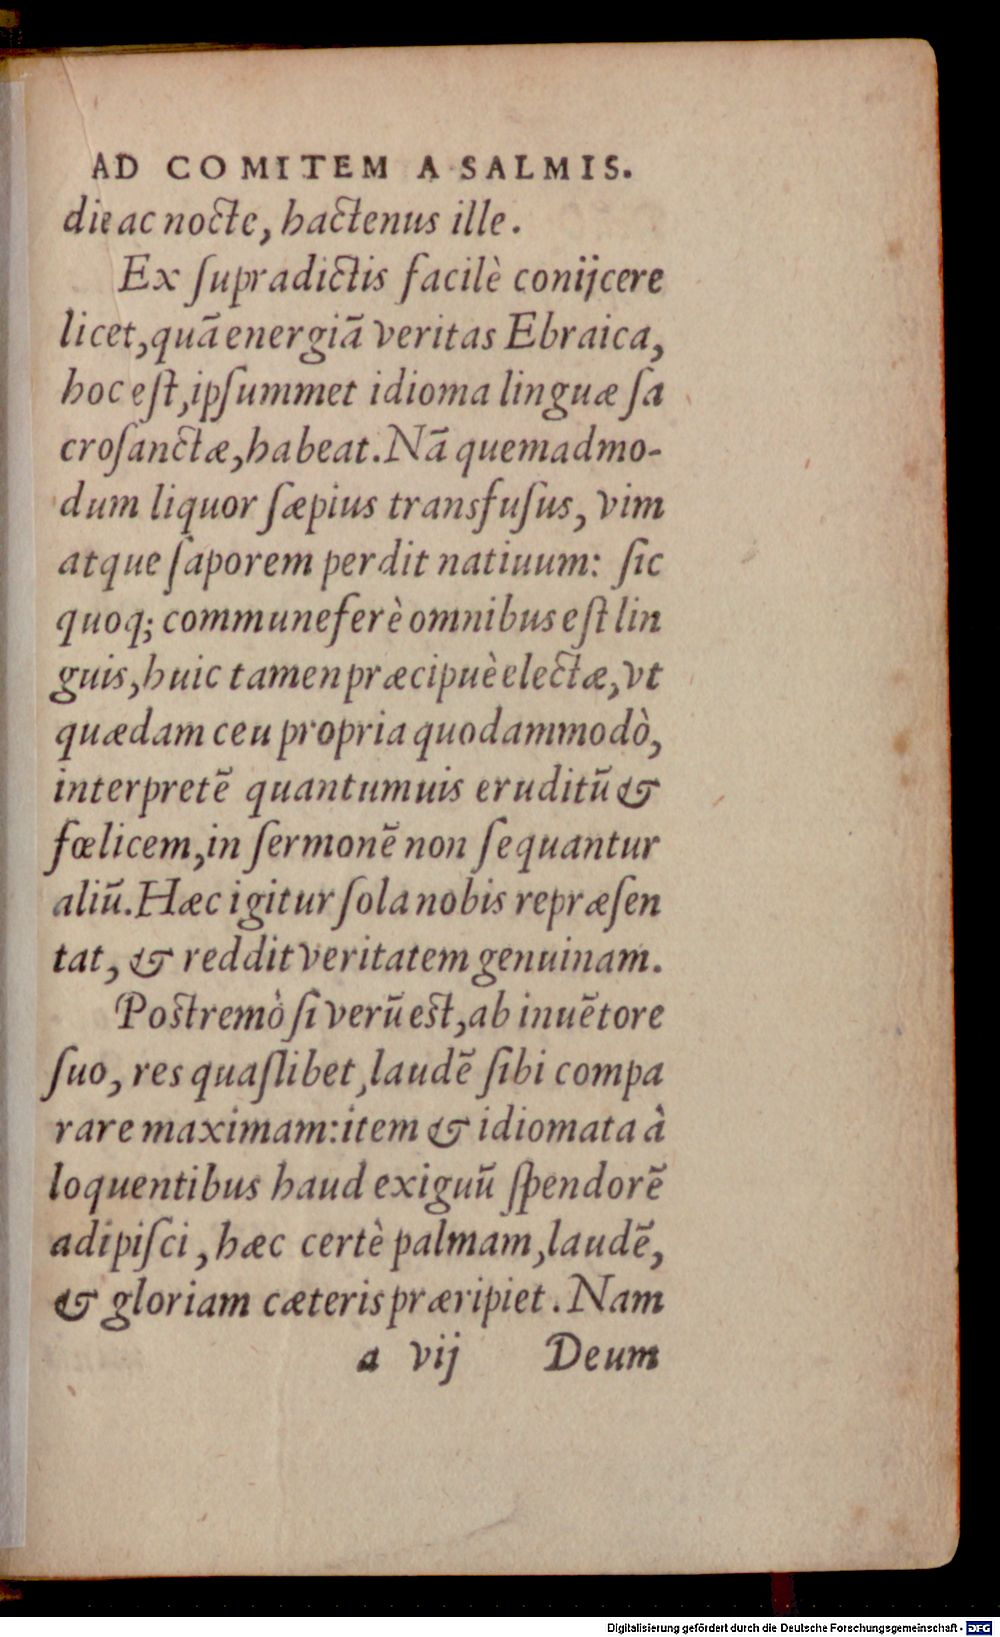 AD COMITEM A SALMIS.
die ac nocte, hactenus ille.
Ex ſupradictis facilè conijcere
licet, quā energiā veritas Ebraica,
hoc eſt, ipſummet idioma linguæ ſa
croſanctæ, habeat. Nā quemadmo-
dum liquor ſæpius transfuſus, vim
atque ſaporem perdit natiuum: ſic
quoq; commune ferè omnibus eſt lin
guis, huic tamen præcipuè electæ, vt
quædam ceu propria quodammodò,
interpretē quantumuis eruditū &
fœlicem, in ſermonē non ſequantur
aliū. Hæc igitur ſola nobis repræſen
tat, & reddit veritatem genuinam.
Postremò ſi verū est, ab inuētore
ſuo, res quaſlibet, laudē ſibi compa
rare maximam: item & idiomata à
loquentibus haud exiguū ſpendorē
adipiſci, hæc certè palmam, laudē,
& gloriam cæteris præripiet. Nam
a vij Deum
Digitalisierung gefördert durch die Deutsche Forschungsgemeinschaft - DFG